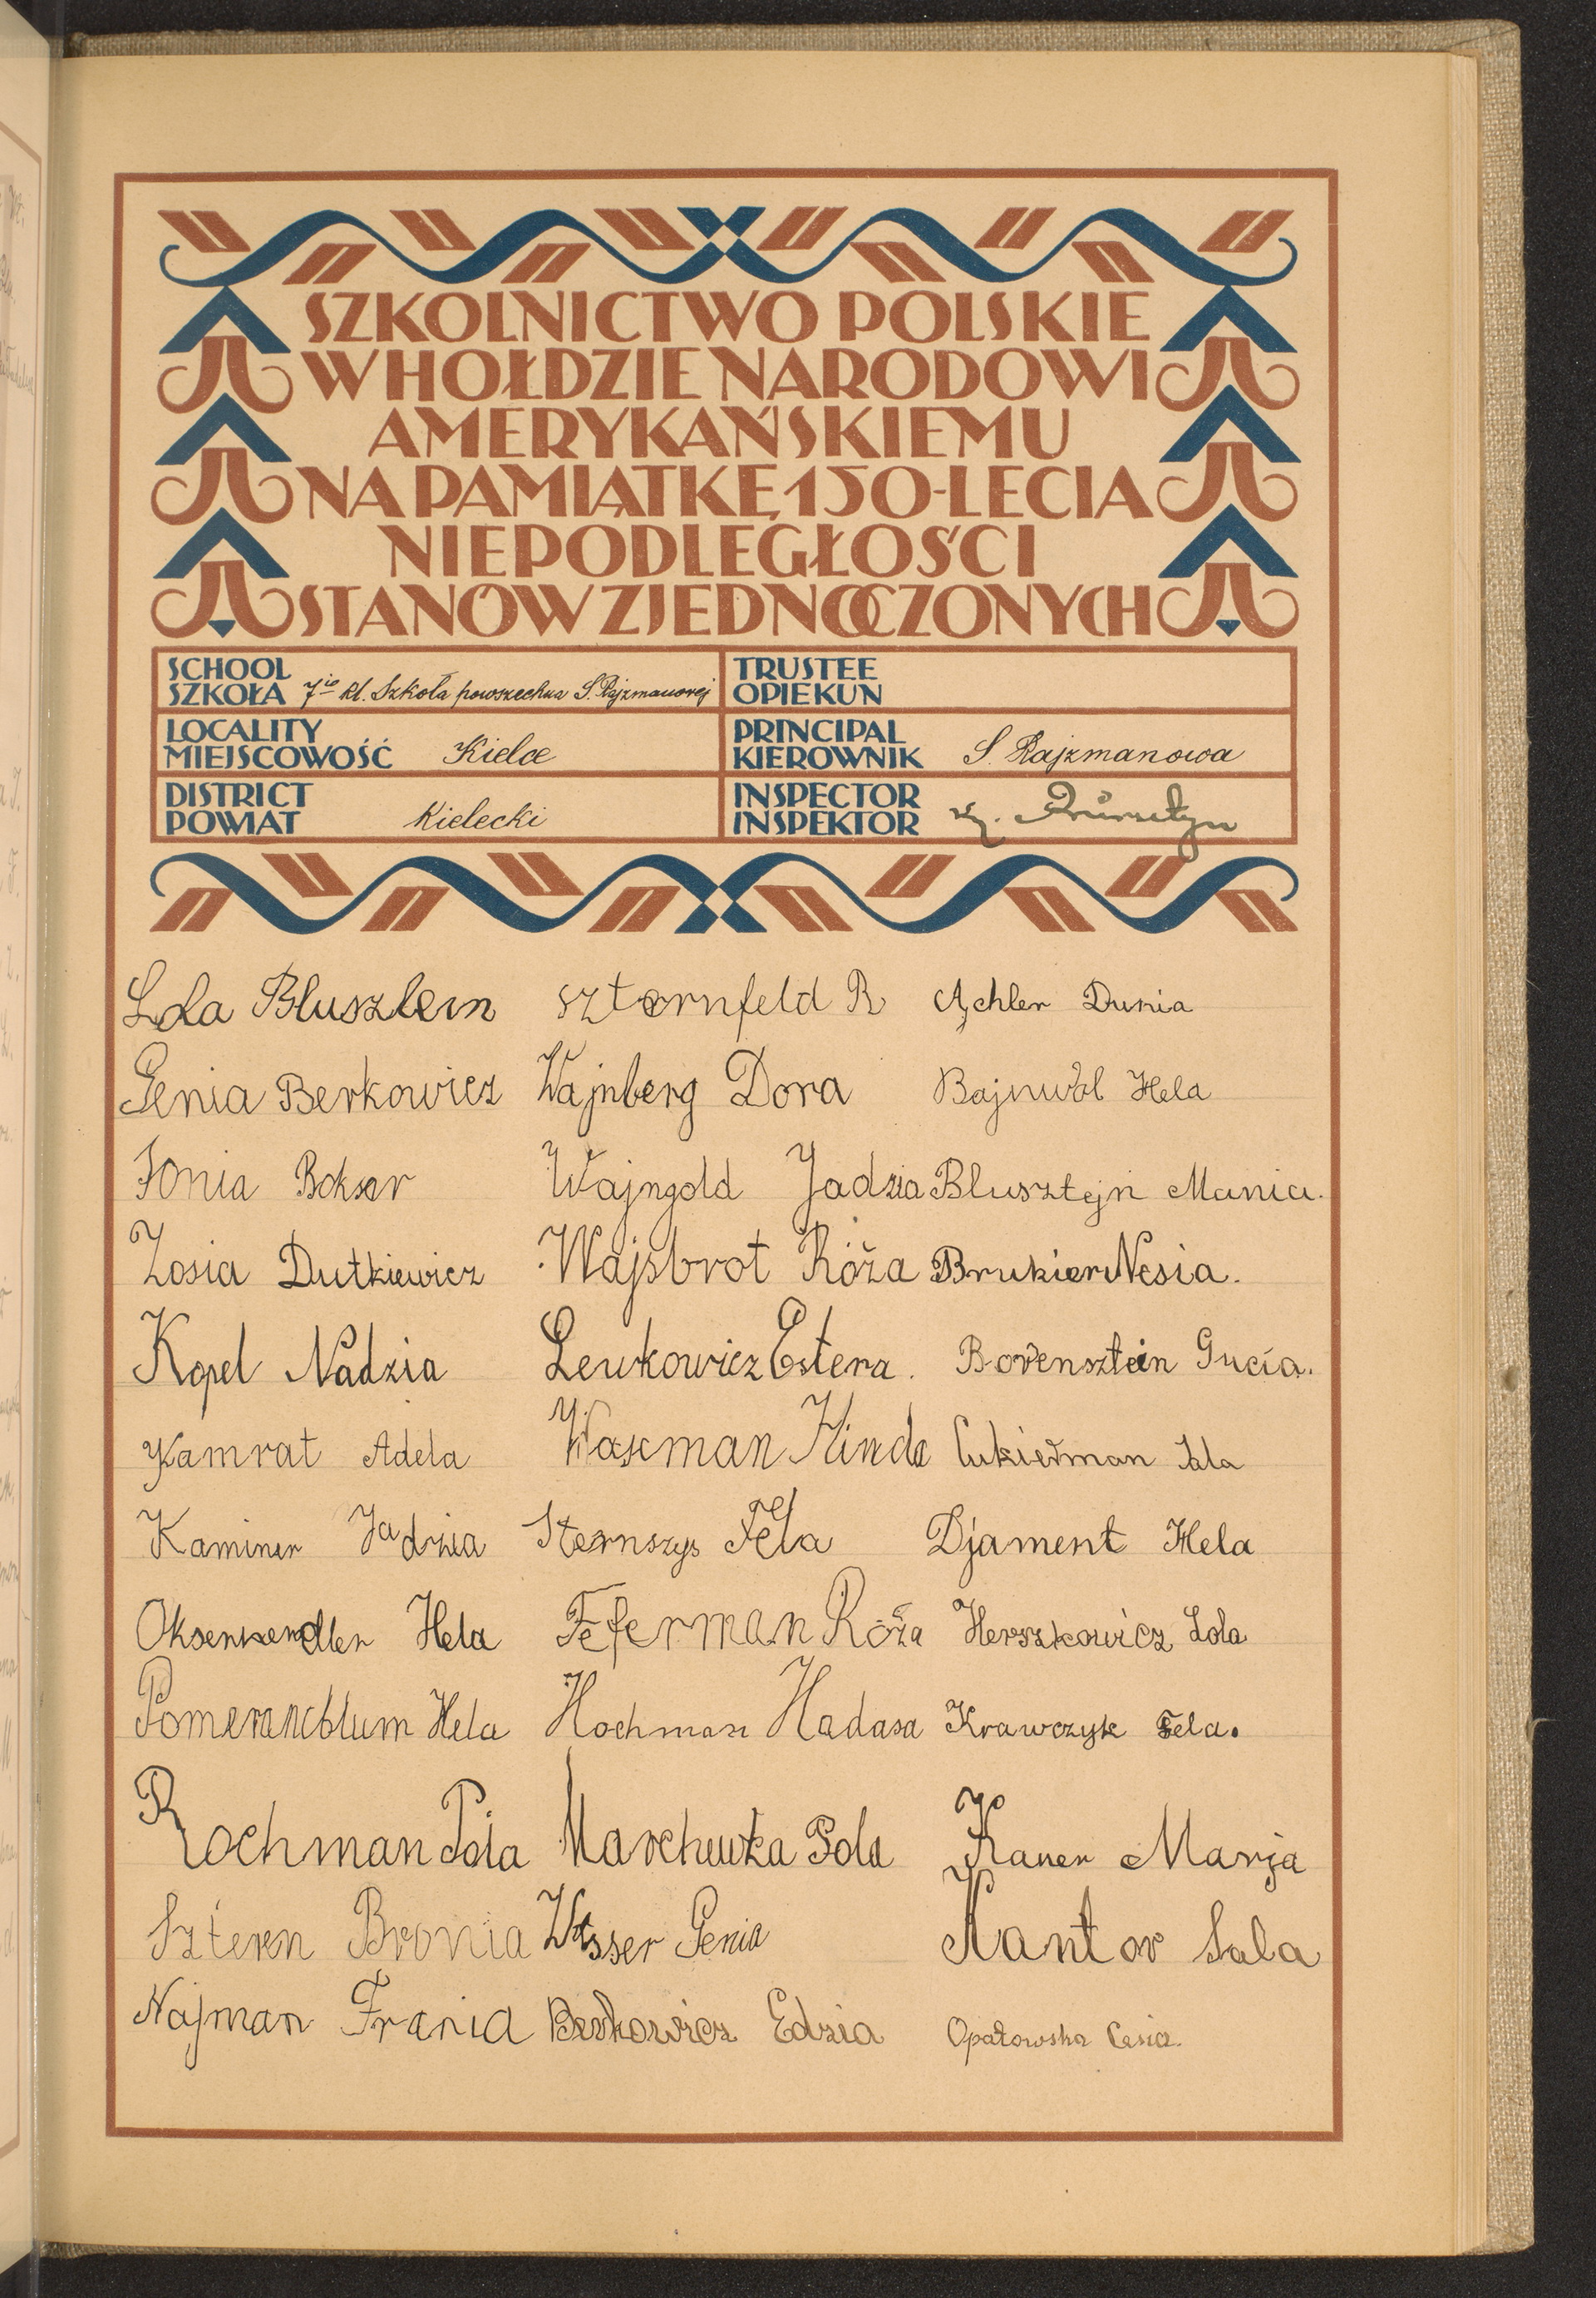 SZKOLNICTWO POLSKIE
W HOŁDZIE NARODOWI
AMERYKAŃSKIEMU
NA PAMIĄTKĘ 150-LECIA
NIEPODLEGŁOŚCI
STANÓW ZJEDNOCZONYCH
SCHOOL
SZKOŁA 7io kl. Szkoła powszechna S. Rajzmanowej
TRUSTEE
OPIEKUN
LOCALITY
MIEJSCOWOŚĆ Kielce
PRINCIPAL
KIEROWNIK S. Rajzmanowa
DISTRICT
POWIAT Kielecki
INSPECTOR
INSPEKTOR
Lola Bluszlein Szternfeld R Ajchler Dunia
Genia Berkowicz Wajnberg Dora Bajnwol Hela
Fonia Bokser Wajngold Jadzia Blusztejn Mania.
Zosia Dutkiewicz Wajsbrot Róża Brukier Nesia.
Kopel Nadzia Lewkowicz Estera. Borensztein Gucia.
Kamrat Adela Waxman Hinda Cukierman Sala
Kaminer Jadzia Sternszys Fela Djament Hela
Oksenhendler Hela Feferman Róża Herszkowicz Lola
Pomerancblum Hela Hochman Hadasa Krawczyk Fela.
Rochman Pola Marchewka Pola Kaner Marja
Sztern Bronia Wasser Genia Kantor Sala
Najman Frania Berkowicz Edzia Opatowska Cesia.